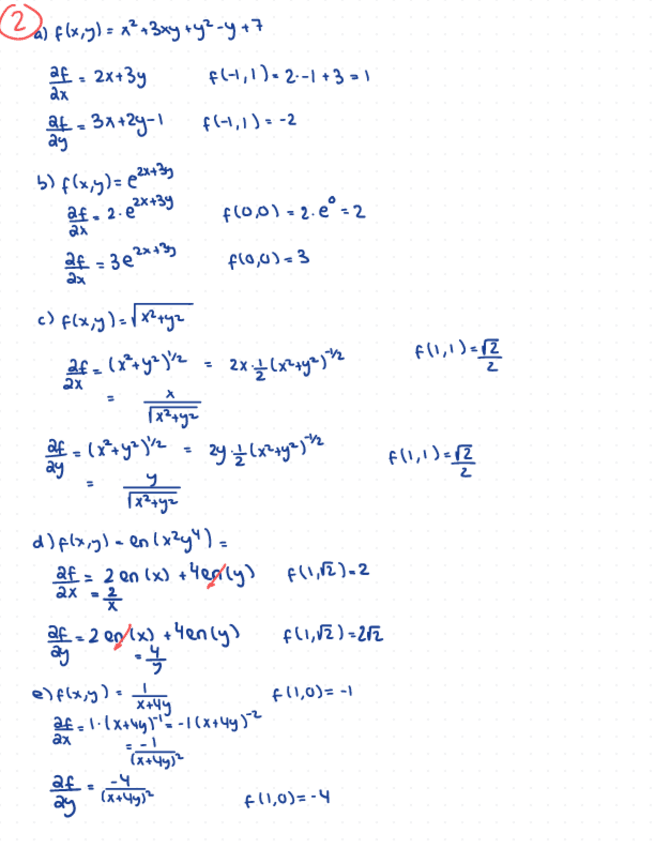 2
a) f(x,y) = x²+3xy+y²-y+7
∂f/∂x = 2x+3y f(-1,1) = 2·-1+3 = 1
∂f/∂y = 3x+2y-1 f(-1,1) = -2
b) f(x,y) = e^(2x+3y)
∂f/∂x = 2·e^(2x+3y) f(0,0) = 2·e⁰ = 2
∂f/∂x = 3e^(2x+3y) f(0,0) = 3
c) f(x,y) = √(x²+y²)
∂f/∂x = (x²+y²)^(1/2) = 2x·1/2(x²+y²)^(-1/2) f(1,1) = √2/2
= x/√(x²+y²)
∂f/∂y = (x²+y²)^(1/2) = 2y·1/2(x²+y²)^(-1/2) f(1,1) = √2/2
= y/√(x²+y²)
d) f(x,y) = ln(x²y⁴) =
∂f/∂x = 2 ln(x) + 4ln(y) f(1,√2) = 2
= 2/x
∂f/∂y = 2 ln(x) + 4ln(y) f(1,√2) = 2√2
= 4/y
e) f(x,y) = 1/(x+4y) f(1,0) = -1
∂f/∂x = 1·(x+4y)^(-1) = -1(x+4y)^(-2)
= -1/(x+4y)²
∂f/∂y = -4/(x+4y)² f(1,0) = -4